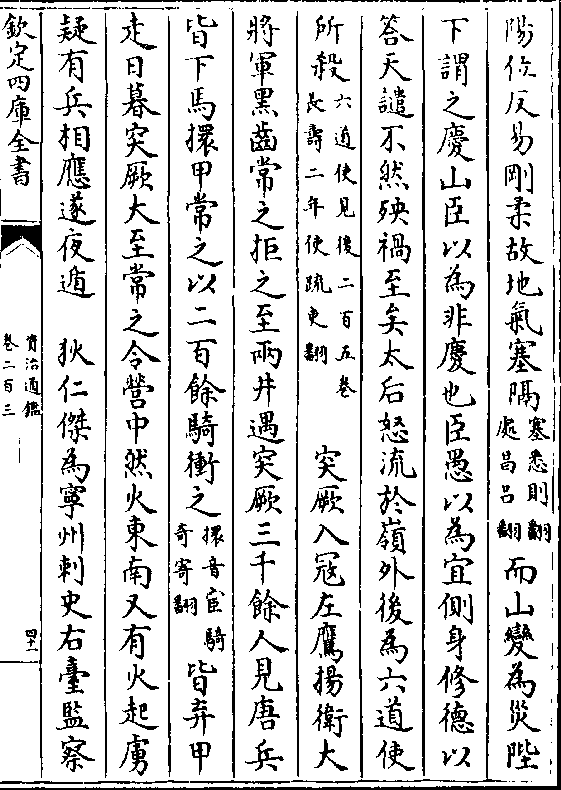 陽位反易剛柔故地氣塞隔塞悉則翻處昌吕翻而山變為災陛
下謂之慶山臣以為非慶也臣愚以為宜側身修德以
荅天譴不然殃禍至矣太后怒流於嶺外後為六道使
所殺六道使見後二百五卷長壽二年使疏吏翻　突厥入冦左鷹揚衛大
將軍黑齒常之拒之至兩井遇突厥三千餘人見唐兵
皆下馬擐甲常之以二百餘騎衝之擐音宦騎奇寄翻皆弃甲
走日暮突厥大至常之令營中然火東南又有火起虜
疑有兵相應遂夜遁　狄仁傑為寧州刺史右臺監察
欽定四庫全書
資治通鑑
卷二百三
四十一